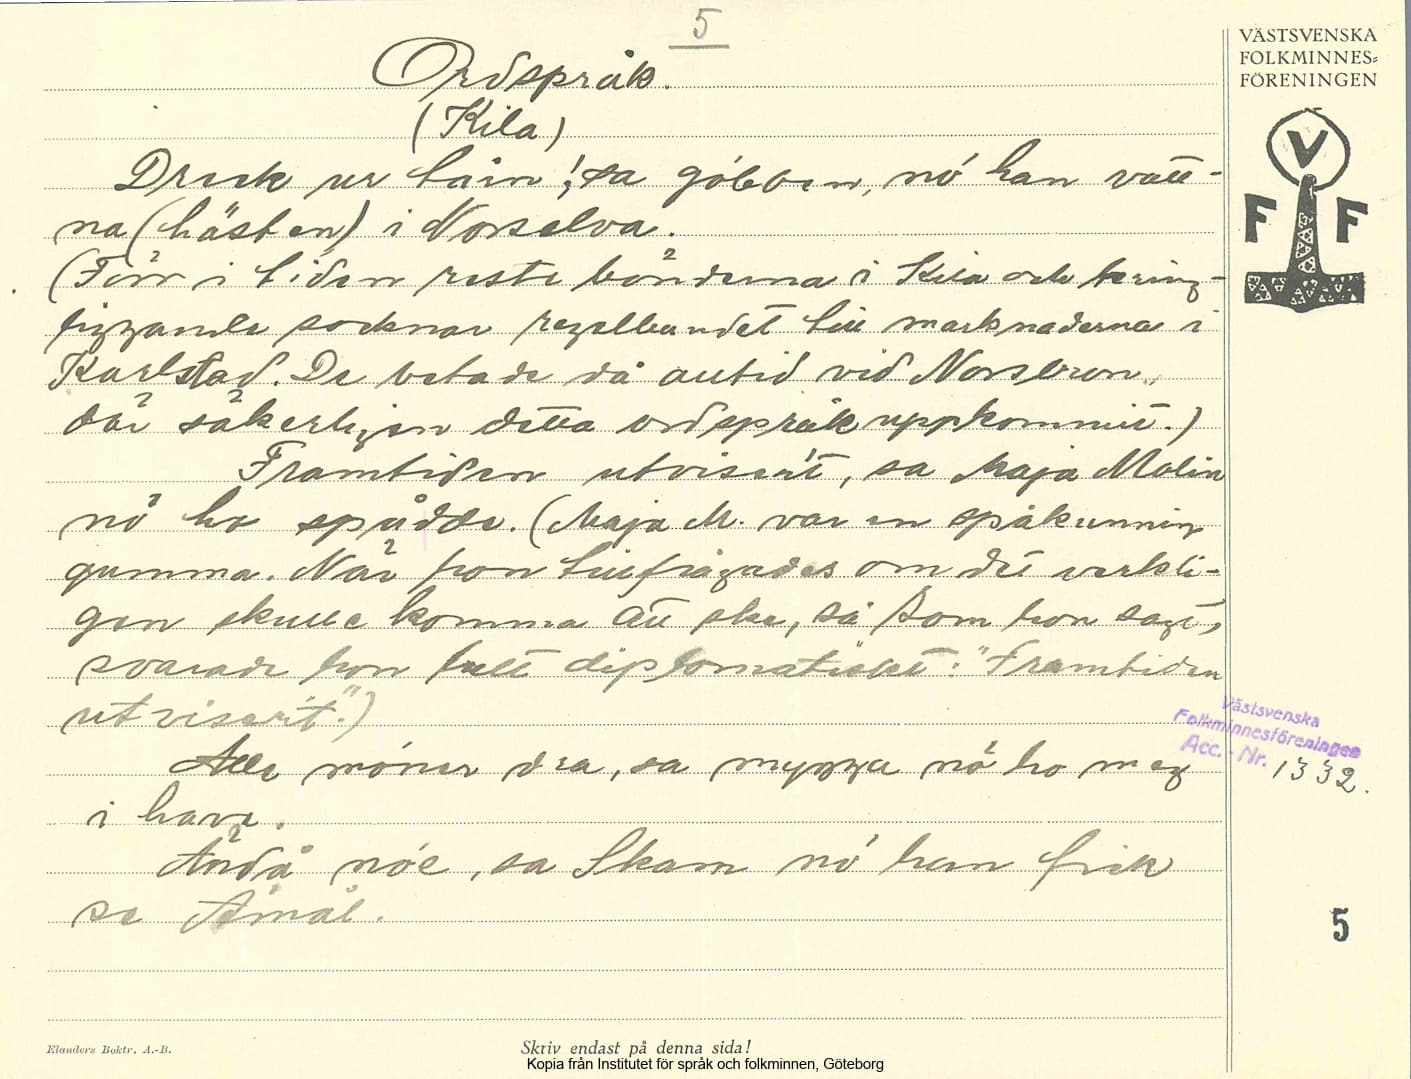 5
VÄSTSVENSKA
FOLKMINNES=
FÖRENINGEN
V
F F
Ordspråk.
(Kila)
Drick ur båin!, sa góbben, nó han vatt-
na (hästen) i Norselva.
(Förr i tiden reste bönderna i Kila och kring-
liggande socknar regelbundet till marknaderna i
Karlstad. De betade då alltid vid Norsbron,
där säkerligen detta ordspråk uppkommit.)
Framtiden utviserit, sa Maja Molin
nó ho spådde. (Maja M. var en spåkunnig
gumma. När hon tillfrågades om det verkli-
gen skulle komma att ske, så som hon sagt,
svarade hon fullt diplomatiskt: "Framtiden
utviserit".)
Alle móner dra, sa mygga nó ho meg
i have.
Ändå nóe, sa Skam nó han fick
se Åmål.
Västsvenska
Folkminnesföreningen
Acc. - Nr. 1332.
5
Elanders Boktr. A.-B.
Skriv endast på denna sida!
Kopia från Institutet för språk och folkminnen, Göteborg